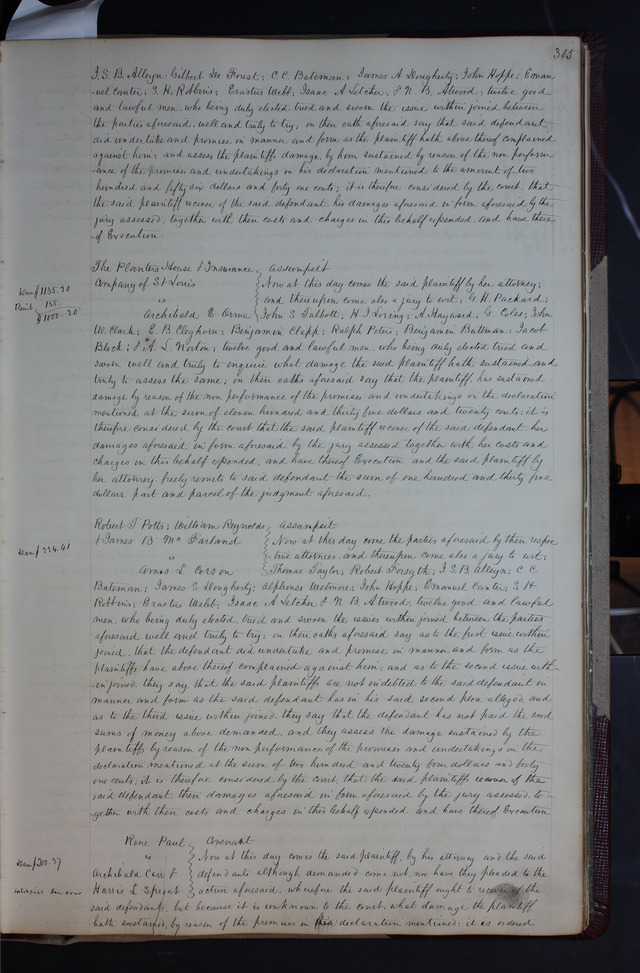 305
I. S. B. Alleyn; Gilbert De Forest; C. C. Bateman; James A Dougherty; John Hoppe; Eman
uel Conter; S. H. Robbins; Erastus Webb; Isaac A Letcher, & N. B. Atwood; twelve good
and lawful men, who being duly elected tried and sworn the issue within joined between
the parties aforesaid, well and truly to try; on their oath aforesaid say that said defendant
did undertake and promise in manner and form as the plaintiff hath above thereof complained
against him; and assess the plaintiffs damage, by him sustained by reason of the non perform
ance of the promises and undertakings in his declaration mentioned to the amount of two
hundred and fifty six dollars and forty one cents; it is therefore considered by the court, that
the said plaintiff recover of the said defendant, his damages aforesaid in form aforesaid by the
jury assessed, together with their costs and charges in this behalf expended, and have there
of Execution
The Planters House & Insurance assumpsit
Company of St Louis Now at this day comes the said plaintiff by her attorney;
Dam $1135.20
vs and thereupon come also a jury to wit; G. H. Packard;
Remit 135.
$1000.20
Archibald E Orme John S Talbott; H. I Loring; A Hayward; G. Coles; John
W. Clark; E B Cleghorn; Benjamin Clapp; Ralph Peters; Benjamin Bateman; Jacob
Block; & A. L. Norton; twelve good and lawful men, who being duly elected tried and
sworn well and truly to enquire what damage the said plaintiff hath sustained and
truly to assess the same; on their oaths aforesaid say that the plaintiff, has sustained
damage by reason of the non performance of the promises and undertakings in the declaration
mentioned at the sum of eleven hundred and thirty five dollars and twenty cents; it is
therefore considered by the court that the said plaintiff recover of the said defendant her
damages aforesaid in form aforesaid, by the jury assessed together with her costs and
charges in this behalf expended, and have thereof Execution and the said plaintiff by
her attorney, freely remits to said defendant the sum of one hundred and thirty five
dollars part and parcel of the judgment aforesaid.
Robert T Potts; William Reynolds assumpsit
& James B McFarland Now at this day come the parties aforesaid by their respec
Dam $224.41
vs tive attornies, and thereupon come also a jury to wit;
Amos L Corson Thomas Taylor; Robert Forsyth; I. S. B. Alleyn; C C
Bateman; James S Dougherty; Alphonso Wetmore; John Hoppe; Emanuel Conter; S H
Robbins; Erastus Webb; Isaac A Letcher & N B Atwood; twelve good and lawful
men, who being duly elected, tried and sworn the issues within joined between the parties
aforesaid well and truly to try; on their oaths aforesaid say as to the first issue within
joined, that the defendant did undertake and promise in manner and form as the
plaintiffs have above thereof complained against him; and as to the second issue with-
in joined, they say, that the said plaintiffs are not indebted to the said defendant in
manner and form as the said defendant has in his said second plea alleged, and
as to the third issue within joined, they say that the defendant has not paid the said
sums of money above demanded, and they assess the damage sustained by the
plaintiffs by reason of the non performance of the promises and undertakings in the
declaration mentioned at the sum of two hundred and twenty four dollars and forty
one cents; it is therefore considered by the court, that the said plaintiffs recover of the
said defendant, their damages aforesaid in form aforesaid by the jury assessed, to-
gether with their costs and charges, in this behalf expended, and have thereof Execution.
Rene Paul Covenant
vs Now at this day comes the said plaintiff, by his attorney, and the said
Dam $200.37
Archibald Carr & defendants although demanded come not nor have they pleaded to the
Harris L Sproat action aforesaid, wherefore the said plaintiff ought to recover of the
said defendants, but because it is unknown to the court, what damage the plaintiff
hath sustained, by reason of the premises in his declaration mentioned; it is ordered